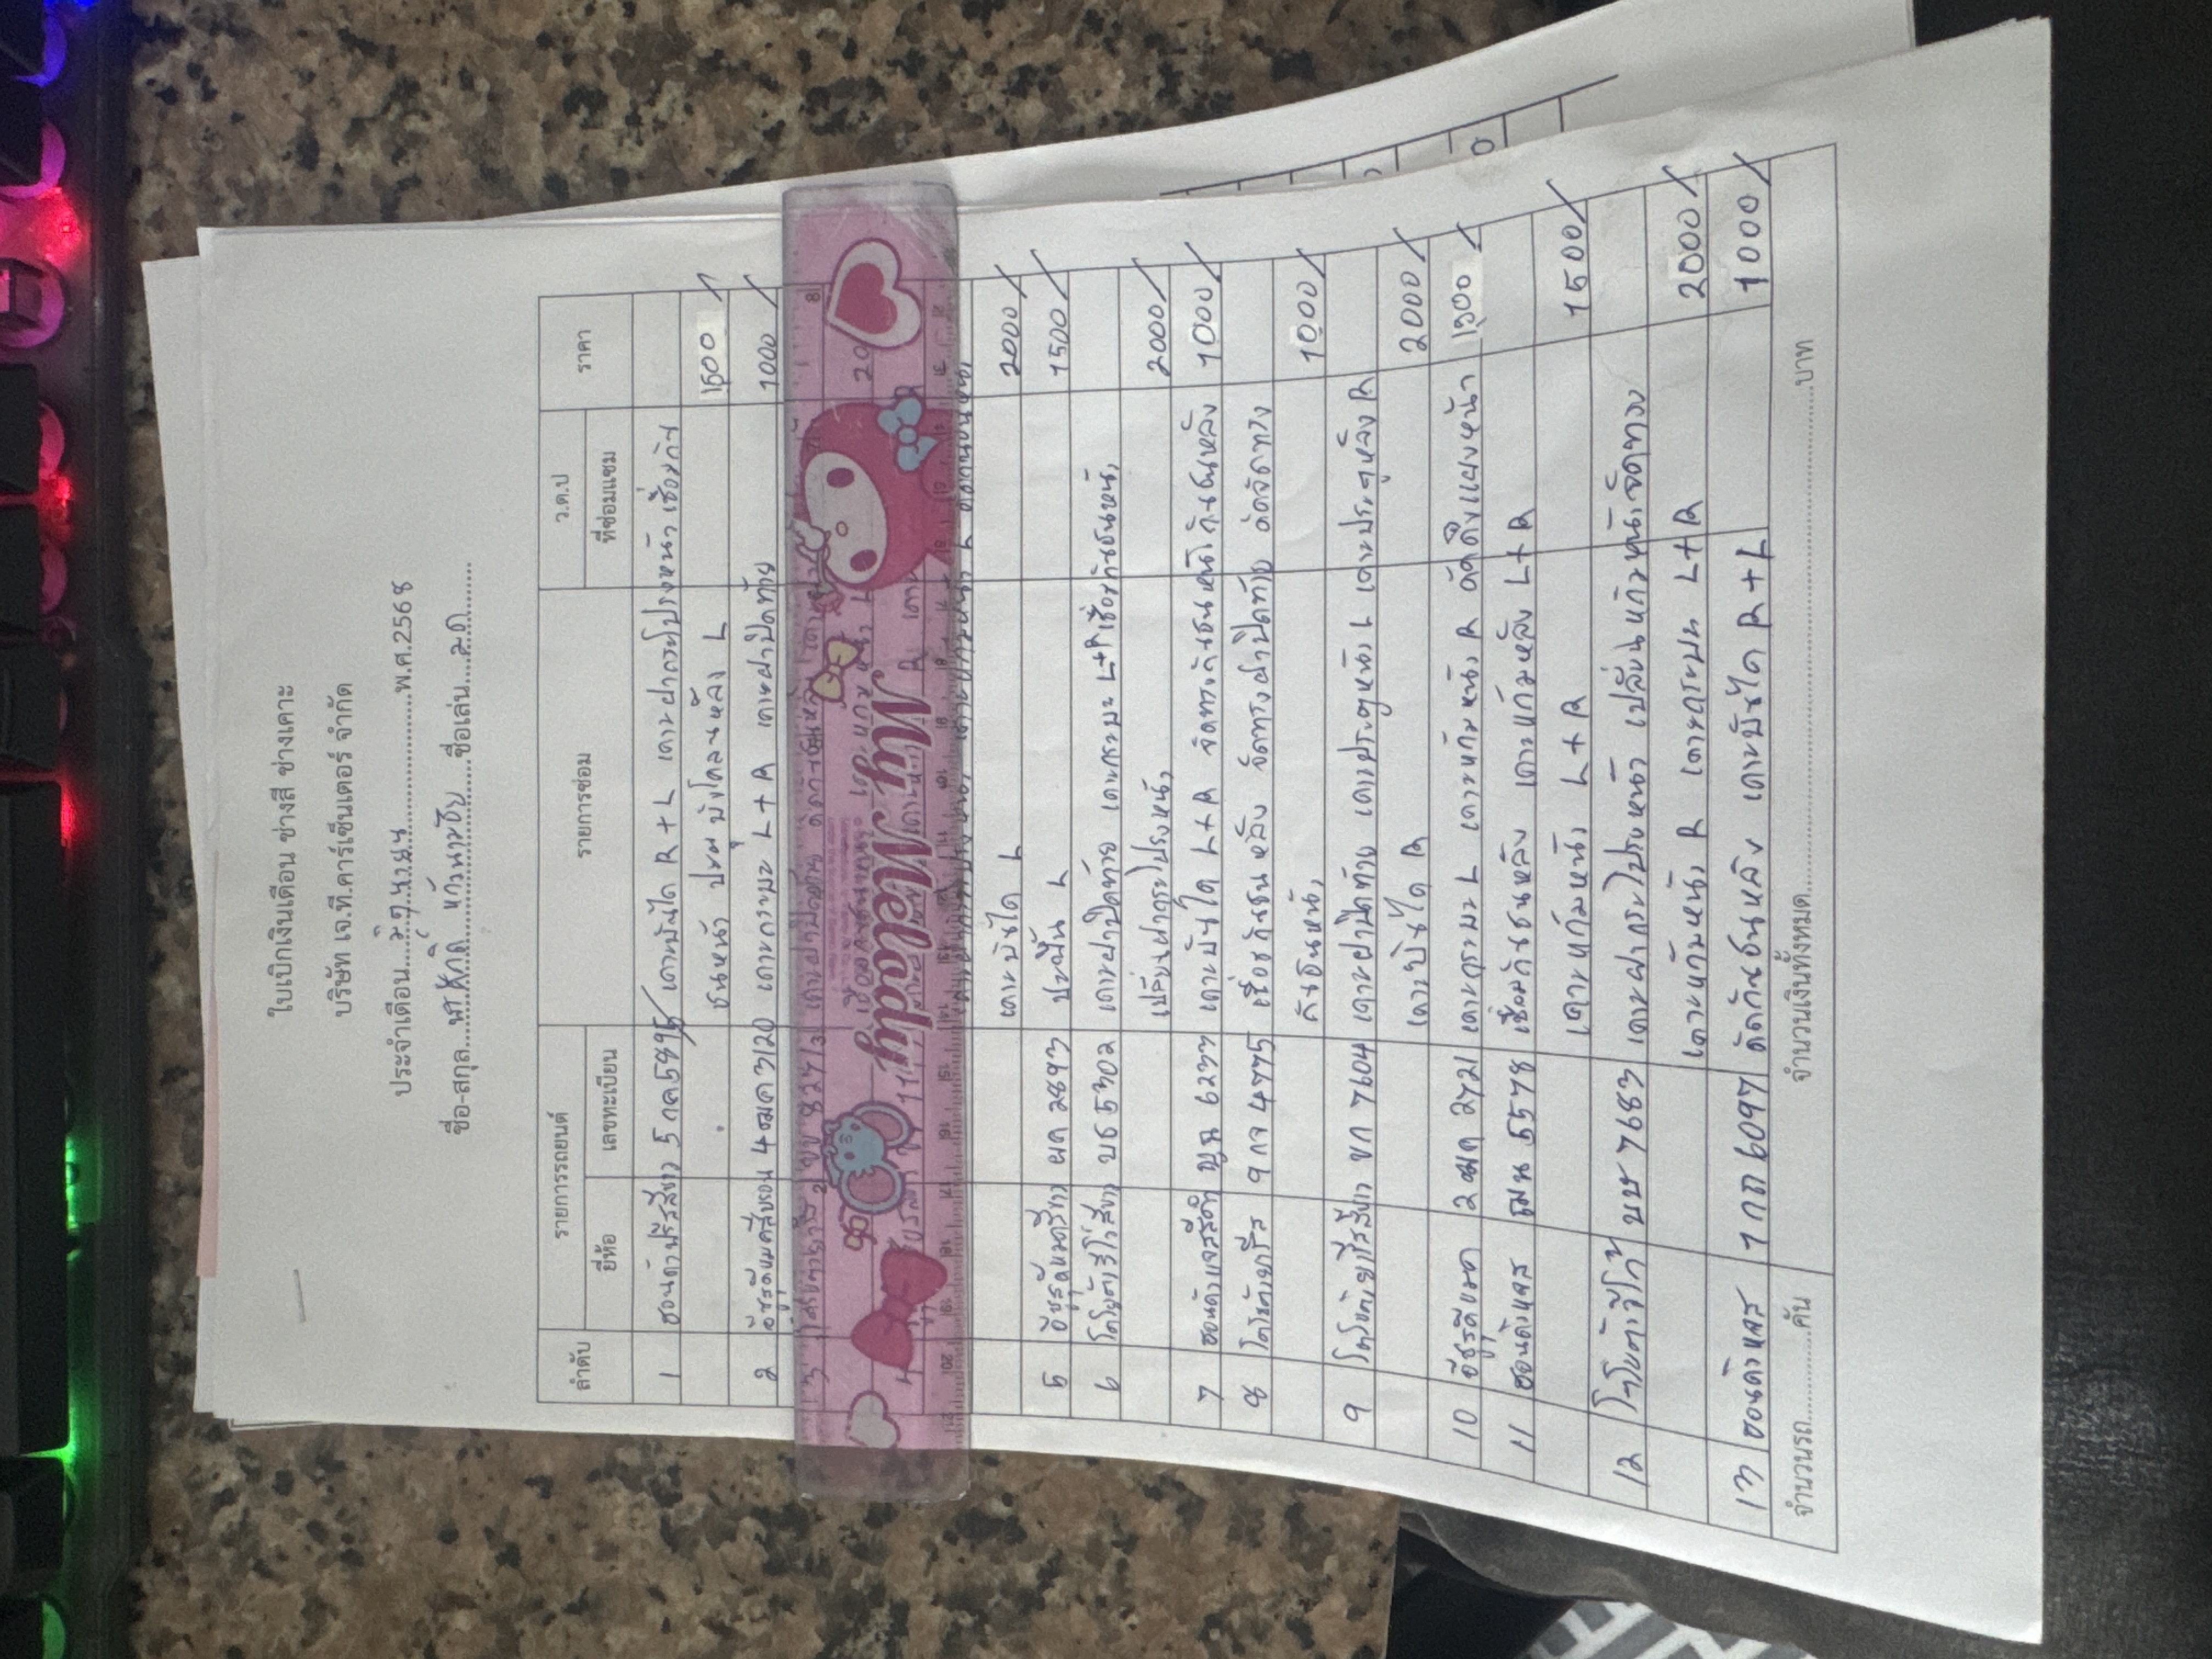 ใบเบิกเงินเดือน ช่างสี ช่างเคาะ
บริษัท เจ.ที.คาร์เซ็นเตอร์ จำกัด
ประจำเดือน...มิถุนายน...พ.ศ.2568
ชื่อ-สกุล... แก้วนาขัน ...ชื่อเล่น...มด...
ลำดับ รายการรถยนต์ รายการซ่อม ว.ด.ป ราคา
ยี่ห้อ เลขทะเบียน ที่ซ่อมแซม
1 ฮอนด้าบรีสสีขาว 5 กล 5895 เคาะบันได R + L เคาะฝากระโปรงหน้า เชื่อมกัน
ชนหน้า ปะผุ บังโคลนหลัง L 1500
2 อีซูซุดีแมคสีบรอน 4 ฒค 3120 เคาะกระบะ L + R เคาะฝาปิดท้าย 1000
3 8277 เคาะฝาปิดท้าย
My Melody
4
เคาะบันได L 2000
5 อีซูซุดีแมคสีขาว ผด 2893 ปะพื้น L 1500
6 โตโยต้าวีโก้สีขาว บธ 5302 เคาะฝาปิดท้าย เคาะกระบะ L+R เชื่อมกันชนหน้า
เปลี่ยนฝากระโปรงหน้า 2000
7 ฮอนด้าแจสสีดำ 6233 เคาะบันได L+R จัดทรงกันชนหน้า กันชนหลัง 1000
8 โตโยต้ายาริส 9 กจ 4775 เชื่อมกันชนหลัง จัดทรงฝาปิดท้าย ดัดจัดทรง
กันชนหน้า 1000
9 โตโยต้ายาริสสีขาว ขก 7604 เคาะฝาปิดท้าย เคาะประตูหน้า L เคาะประตูหลัง R
เคาะบันได R 2000
10 อีซูซุดีแมค 2 ฒฒ 2721 เคาะกระบะ L เคาะแก้มหน้า R ดัดดึงแผงหน้า 1500
11 ฮอนด้าแจส ฌน 5578 เชื่อมกันชนหลัง เคาะแก้มหลัง L+R
เคาะแก้มหน้า L + R 1500
12 โตโยต้าวีโก้ บษ 7683 เคาะฝากระโปรงหน้า เปลี่ยนแก้มหน้าจัดทรง
เคาะแก้มหน้า R เคาะกระบะ L+R 2000
13 ฮอนด้าแจส 7 กถ 6097 ดัดกันชนหลัง เคาะบันได R + L 1000
จำนวนรถ............คัน จำนวนเงินทั้งหมด............................................บาท